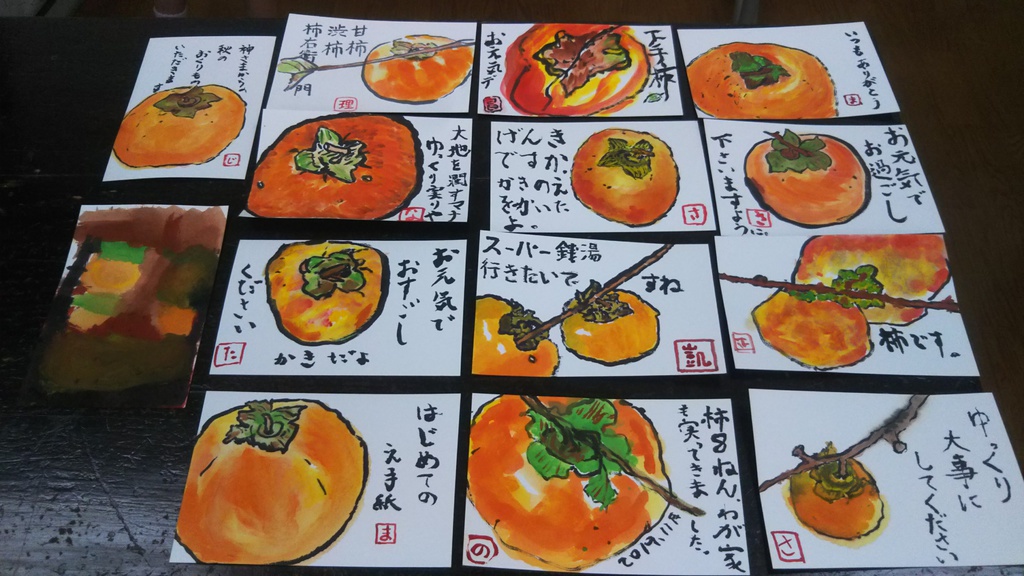 神さまからの
秋の
おくりもの
いただきます
じ
甘柿
渋柿
柿右衛門
理
下手柿
お元気デ
いつもありがとう
ま
大地を潤すマナ
ゆっくり実りや
きかえた
んすのい
げずきか
でがを
よ。
さ
お元気で
お過ごし
下さいますように
き
お元気で
おすごし
ください
かきだよ
た
スーパー銭湯
行きたいで
すね
凱
柿です。
は
はじめての
え手紙
ま
柿8ねん、わが家
も実ってきました。
2019.11月
の
ゆっくり
大事に
してください
さ